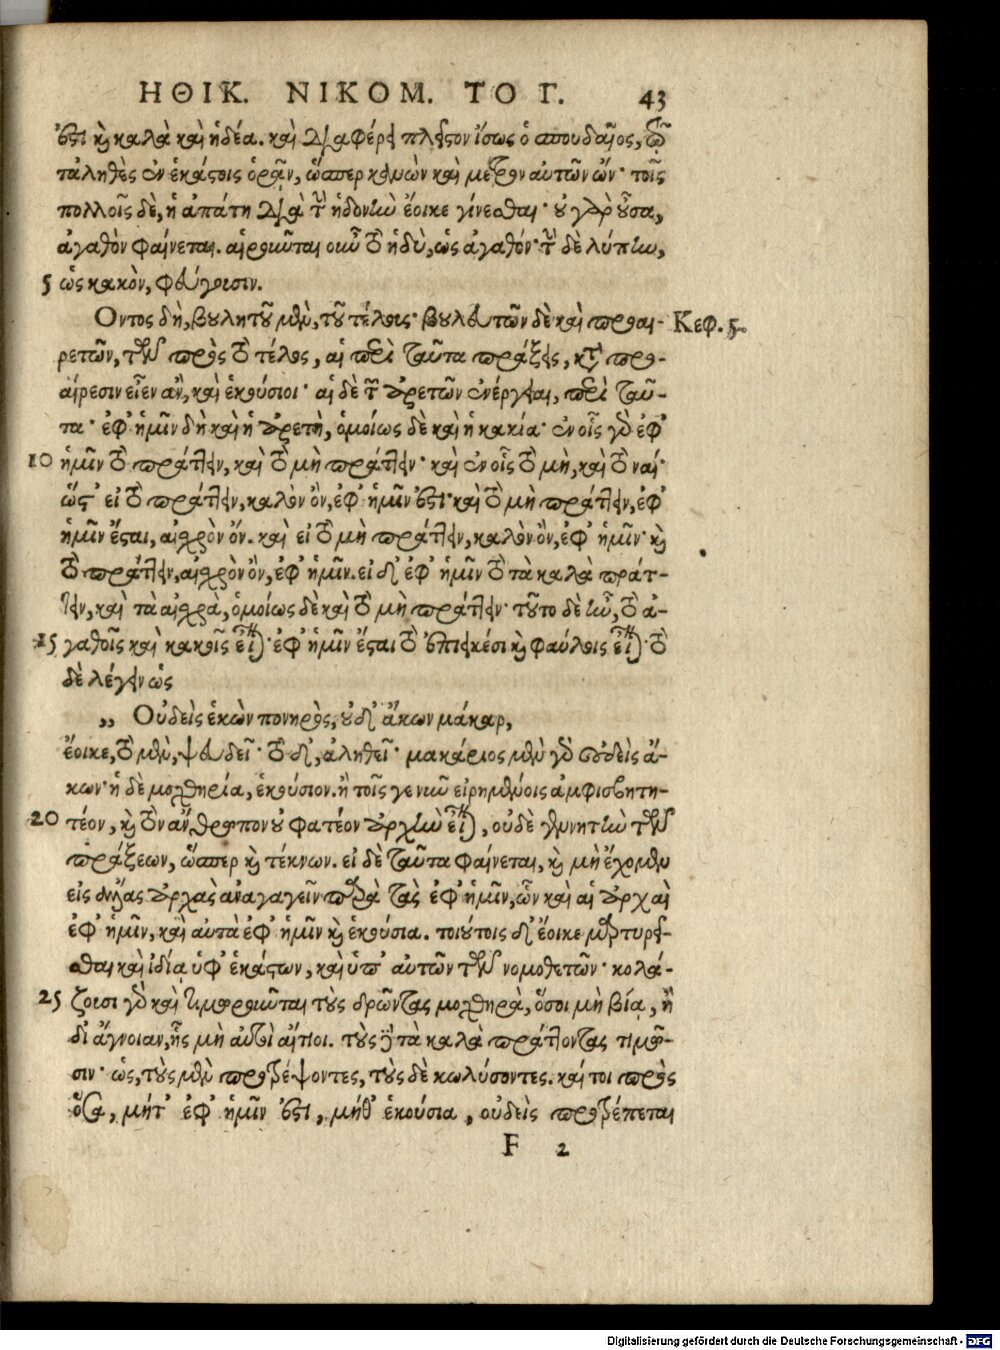 ΗΘΙΚ. ΝΙΚΟΜ. ΤΟ Γ. 43
ἐστι καὶ καλὰ καὶ ἡδέα. καὶ διαφέρει πλεῖστον ἴσως ὁ σπουδαῖος, τῷ
τἀληθὲς ἐν ἑκάστοις ὁρᾶν, ὥσπερ κανὼν καὶ μέτρον αὐτῶν ὤν· τοῖς
πολλοῖς δὲ, ἡ ἀπάτη διὰ τὴν ἡδονὴν ἔοικε γίνεσθαι· οὐ γὰρ οὖσα,
ἀγαθὸν φαίνεται. αἱροῦνται οὖν τὸ ἡδὺ, ὡς ἀγαθόν· τὴν δὲ λύπην,
5 ὡς κακὸν, φεύγουσιν.
Ὄντος δὴ, βουλητοῦ μὲν, τοῦ τέλους· βουλευτῶν δὲ καὶ προαι- Κεφ. ζ.
ρετῶν, τῶν πρὸς τὸ τέλος, αἱ περὶ ταῦτα πράξεις, κατὰ προ-
αίρεσιν εἶεν ἂν, καὶ ἑκούσιοι· αἱ δὲ τῶν ἀρετῶν ἐνέργειαι, περὶ ταῦ-
τα· ἐφ' ἡμῖν δὴ καὶ ἡ ἀρετὴ, ὁμοίως δὲ καὶ ἡ κακία· ἐν οἷς γὰρ ἐφ'
10 ἡμῖν τὸ πράττειν, καὶ τὸ μὴ πράττειν· καὶ ἐν οἷς τὸ μὴ, καὶ τὸ ναί·
ὥστ' εἰ τὸ πράττειν, καλὸν ὂν, ἐφ' ἡμῖν ἐστι· καὶ τὸ μὴ πράττειν, ἐφ'
ἡμῖν ἔσται, αἰσχρὸν ὄν. καὶ εἰ τὸ μὴ πράττειν, καλὸν ὂν, ἐφ' ἡμῖν· καὶ
τὸ πράττειν, αἰσχρὸν ὂν, ἐφ' ἡμῖν. εἰ δ' ἐφ' ἡμῖν τὸ τὰ καλὰ πράτ-
τειν, καὶ τὰ αἰσχρὰ, ὁμοίως δὲ καὶ τὸ μὴ πράττειν· τοῦτο δὲ ἦν, τὸ ἀ-
15 γαθοῖς καὶ κακοῖς εἶναι· ἐφ' ἡμῖν ἔσται τὸ ἐπιεικέσι καὶ φαύλοις εἶναι· τὸ
δὲ λέγειν ὡς
„ Οὐδεὶς ἑκὼν πονηρὸς, οὐδ' ἄκων μάκαρ,
ἔοικε, τὸ μὲν, ψευδεῖ· τὸ δ', ἀληθεῖ· μακάριος μὲν γὰρ οὐδεὶς ἄ-
κων· ἡ δὲ μοχθηρία, ἑκούσιον. ἢ τοῖς γε νῦν εἰρημένοις ἀμφισβητη-
20 τέον, καὶ τὸν ἄνθρωπον οὐ φατέον ἀρχὴν εἶναι, οὐδὲ γεννητὴν τῶν
πράξεων, ὥσπερ καὶ τέκνων. εἰ δὲ ταῦτα φαίνεται, καὶ μὴ ἔχομεν
εἰς ἄλλας ἀρχὰς ἀναγαγεῖν παρὰ τὰς ἐφ' ἡμῖν, ὧν καὶ αἱ ἀρχαὶ
ἐφ' ἡμῖν, καὶ αὐτὰ ἐφ' ἡμῖν καὶ ἑκούσια. τούτοις δ' ἔοικε μαρτυρεῖ-
σθαι καὶ ἰδίᾳ ὑφ' ἑκάστων, καὶ ὑπ' αὐτῶν τῶν νομοθετῶν· κολά-
25 ζουσι γὰρ καὶ τιμωροῦνται τοὺς δρῶντας μοχθηρὰ, ὅσοι μὴ βίᾳ, ἢ
δι' ἄγνοιαν, ἧς μὴ αὐτοὶ αἴτιοι. τοὺς δὲ τὰ καλὰ πράττοντας τιμῶ-
σιν· ὡς, τοὺς μὲν προτρέψοντες, τοὺς δὲ κωλύσοντες. καίτοι πρὸς
ὅσα, μήτ' ἐφ' ἡμῖν ἐστι, μήθ' ἑκούσια, οὐδεὶς προτρέπεται
F 2
Digitalisierung gefördert durch die Deutsche Forschungsgemeinschaft - DFG